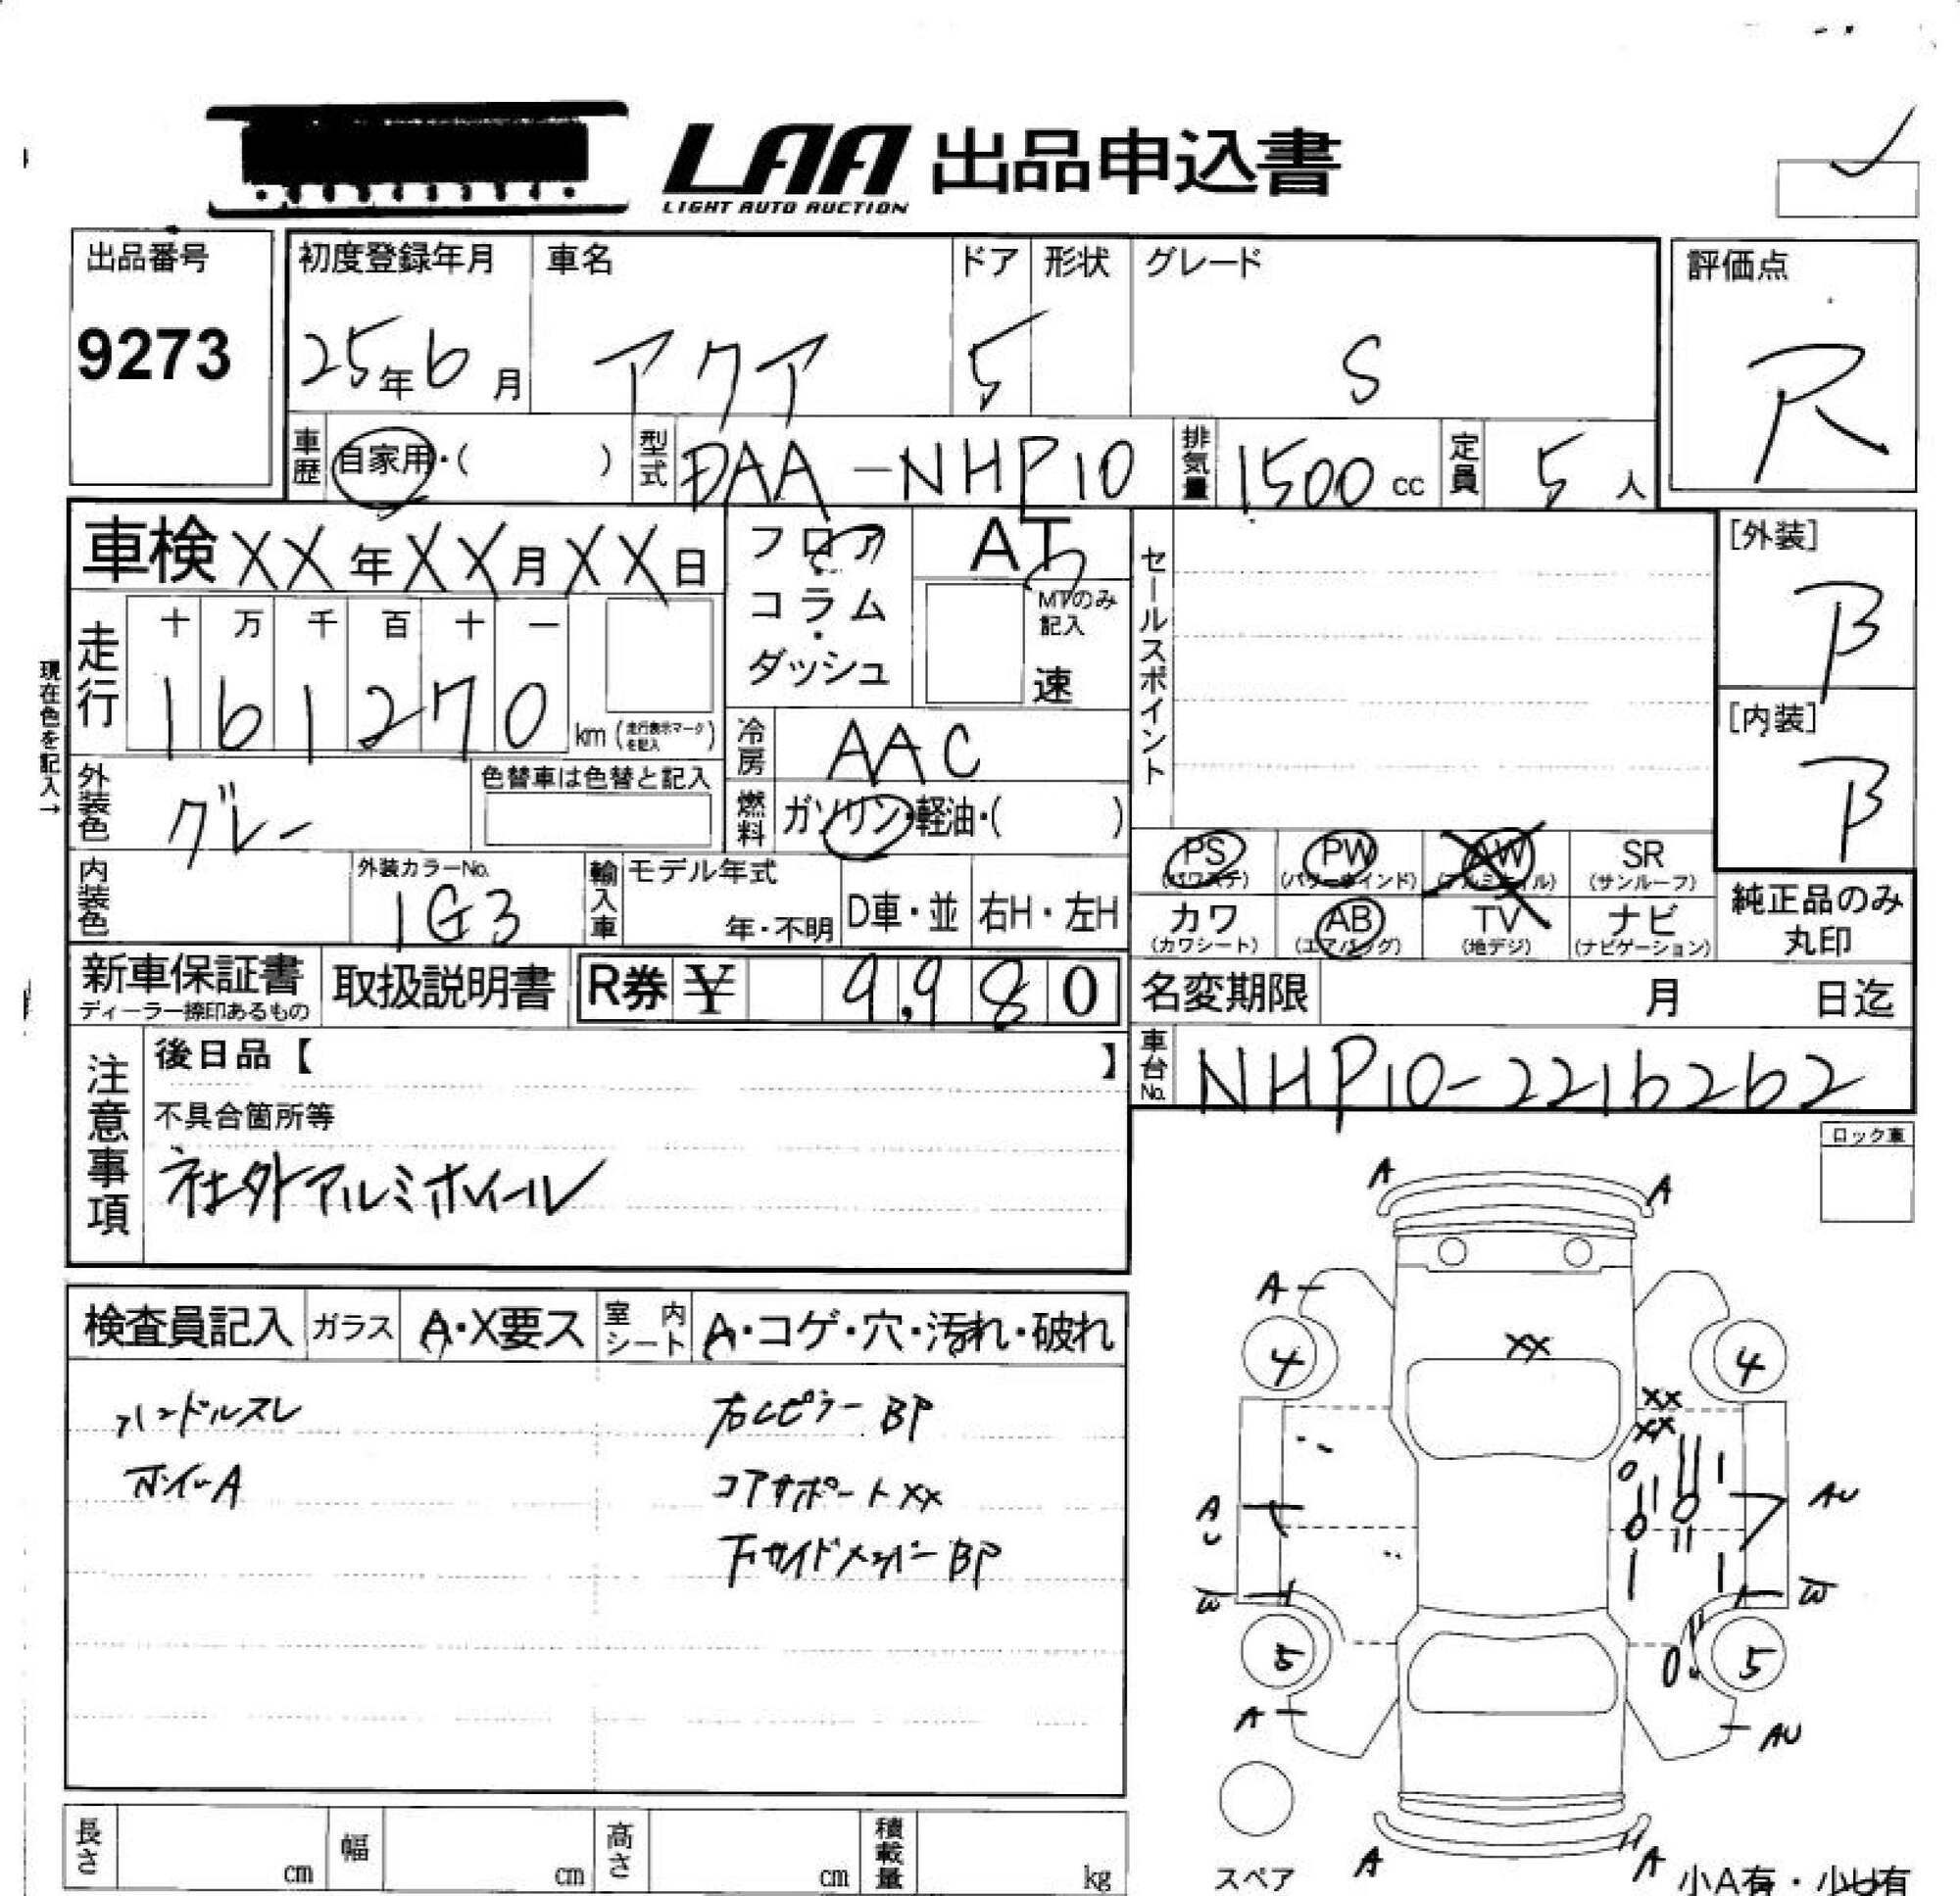 LAA 出品申込書
LIGHT AUTO AUCTION
出品番号 初度登録年月 車名 ドア 形状 グレード 評価点
9273 25年6月 アクア 5 S R
車歴 自家用・( ) 型式 DAA-NHP10 排気量 1500cc 定員 5人
車検 XX年XX月XX日 フロア AT セールスポイント [外装]
コラム・ MTのみ記入 B
ダッシュ 速
現在色を記入→
走行 十 万 千 百 十 一
161270 km (走行表示マークを記入) [内装]
冷房 AAC B
外装色 グレー 色替車は色替と記入
燃料 ガソリン・軽油・( )
PS PW AW SR
(パワステ) (パワーウインド) (アルミホイル) (サンルーフ)
内装色 外装カラーNo. 1G3 輸入車 モデル年式 年・不明 D車・並 右H・左H
カワ AB TV ナビ 純正品のみ
(カワシート) (エアバッグ) (地デジ) (ナビゲーション) 丸印
新車保証書 取扱説明書 R券 ¥ 9,980 名変期限 月 日迄
ディーラー捺印あるもの
注意事項 後日品【 】 車台No. NHP10-2216262
不具合箇所等 ロック車
社外アルミホイール
検査員記入 ガラス A・X要ス 室内シート A・コゲ・穴・汚れ・破れ
ハンドルスレ 右Cピラー BP
ホイルA コアサポート XX
下サイドメンバー BP
A A
A
4 XX 4
XX
XX
A AU
U
W W
5 5
A AU
A A
スペア 小A有・小U有
長さ cm 幅 cm 高さ cm 積載量 kg